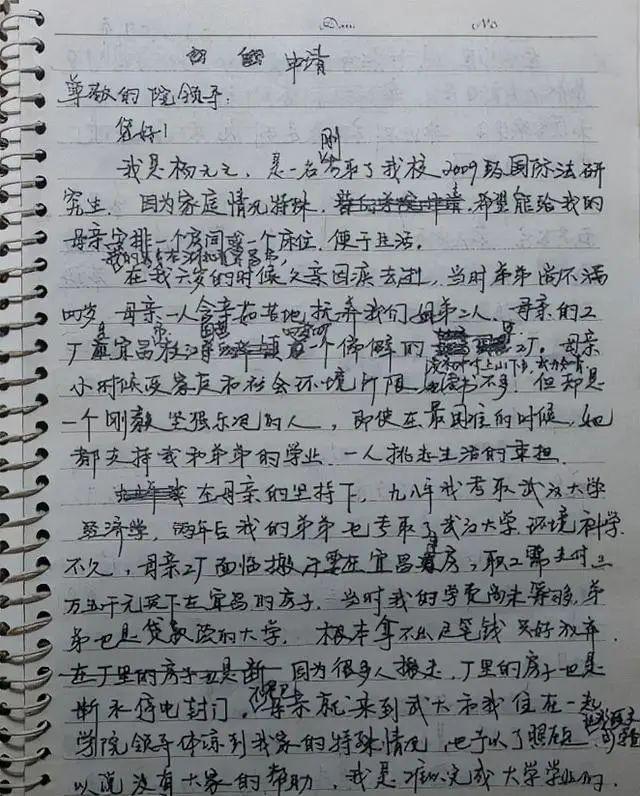 D... No
申请
尊敬的院领导:
您好!
我是杨元元,是一名刚考取了我校2009级国际法研
究生。因为家庭情况特殊,希望能给我的
母亲安排一个房间或一个床位,便于生活。
在我六岁的时候父亲因病去逝,当时弟弟尚不满
四岁,母亲一人含辛茹苦地抚养我们姐弟二人。母亲的工
厂是宜昌市枝江一个偏僻的工厂。母亲
小时候受家庭和社会环境所限,读书不多,但却是
一个刚毅坚强乐观的人,即使在最困难的时候,她
都支持我和弟弟的学业,一人挑起生活的重担
在母亲的坚持下,九八年我考取武汉大学
经济学,两年后我的弟弟也考取了武汉大学环境科学
不久,母亲工厂面临搬 在宜昌 房,职工需支付三
万五千元买下在宜昌的房子。当时我的学费尚未筹够,弟
弟也是贷款读的大学,根本拿不出这笔钱只好放弃
在厂里的房子也是断 因为很多人搬走,厂里的房子也是
断水停电封门,母亲就来到武大和我住在一起
学院领导体谅到我家的特殊情况,也予以了照应,可
以说没有大家的帮助,我是难以完成大学学业的。